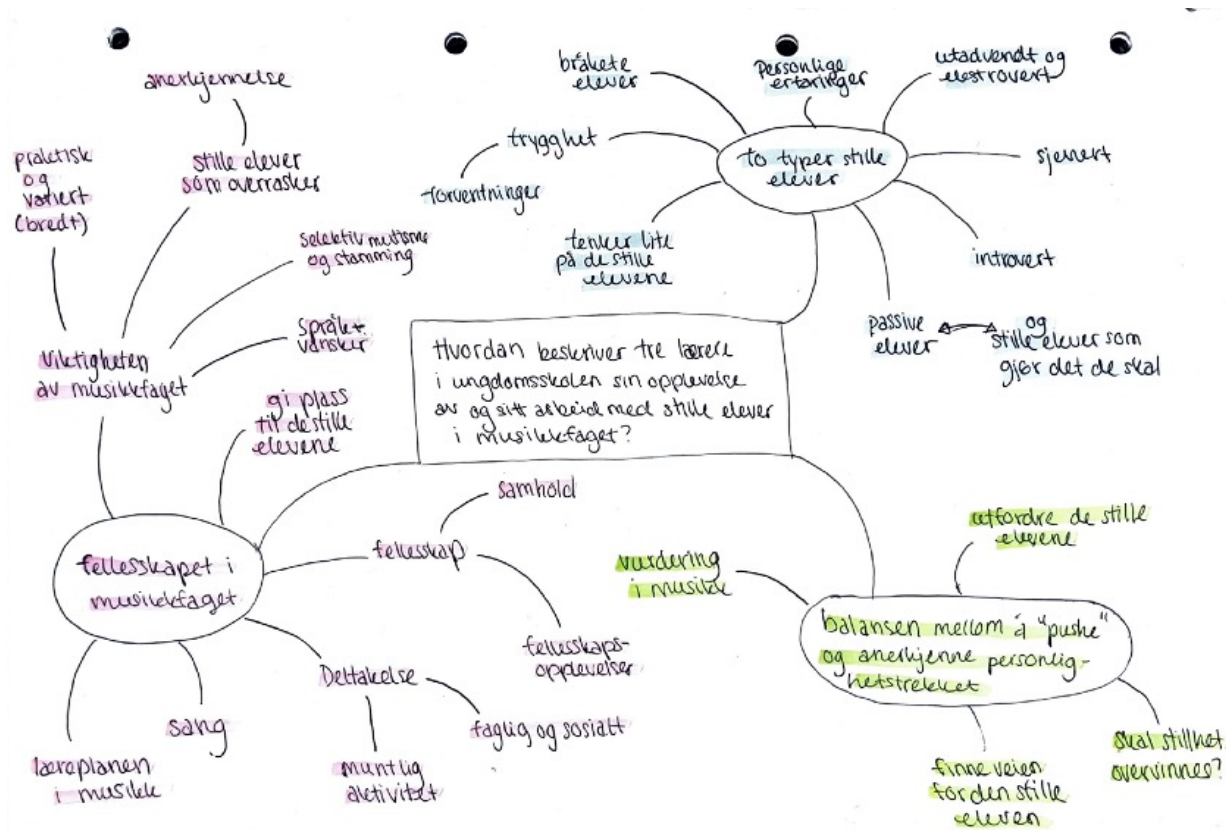 anerkjennelse
stille elever
som overrasker
praktisk
og
variert
(bredt)
selektiv mutisme
og stamming
Språk-
vansker
Viktigheten
av musikkfaget
gi plass
til de stille
elevene
bråkete
elever
Personlige
erfaringer
utadvendt og
ekstrovert
trygghet
forventninger
to typer stille
elever
sjenert
tenker lite
på de stille
elevene
introvert
passive
elever
og
stille elever som
gjør det de skal
Hvordan beskriver tre lærere
i ungdomsskolen sin opplevelse
av og sitt arbeid med stille elever
i musikkfaget?
fellesskapet i
musikkfaget
samhold
fellesskap
fellesskaps-
opplevelser
Deltakelse
faglig og sosialt
muntlig
aktivitet
sang
læreplanen
i musikk
utfordre de stille
elevene
vurdering
i musikk
balansen mellom å "pushe"
og anerkjenne personlig-
hetstrekket
skal stillhet
overvinnes?
finne veien
for den stille
eleven